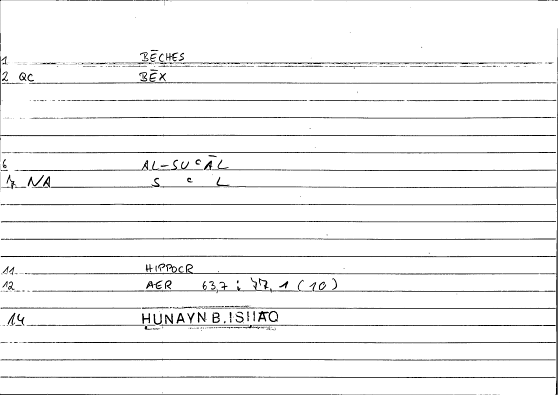 1 BĒCHES
2 QC BĒX
6 AL-SUᶜĀL
7 NA S ᶜ L
11 HIPPOCR
12 AER 63,7 ; 77, 1 (10)
14 HUNAYN B. ISHAQ